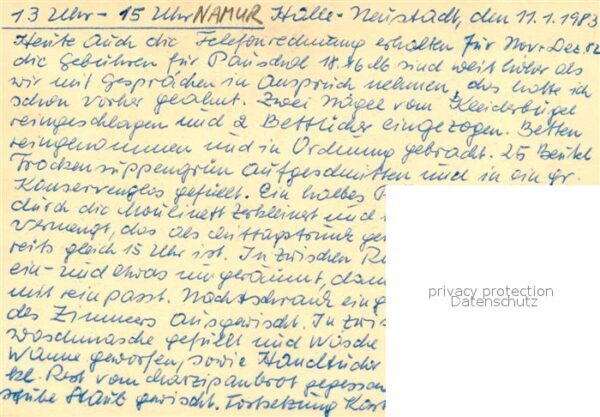 13 Uhr - 15 Uhr NAMUR Halle-Neustadt, den 11.1.1983
Heute auch die Telefonrechnung erhalten für Nov. Dez. 82
die Gebühren für Pauschal 18.- M sind weit höher als
wir mit Gesprächen in Anspruch nehmen, das hatte ich
schon vorher geahnt. Zwei Nägel vom Kleiderbügel
reingeschlagen und 2 Bettücher eingezogen. Betten
reingenommen und in Ordnung gebracht. 25 Beutel
Trockensuppengrün aufgeschnitten und in ein gr.
Konservenglas gefüllt. Ein halbes
durch die Moulinett zerkleinert und
vermengt, das als Mittagstrunk
reits gleich 15 Uhr ist. Inzwischen
ein- und etwas umgeräumt,
mit reinpasst. Nachtschrank
des Zimmers ausgewischt. In
waschmasche gefüllt und Wäsche
Wanne geworfen, sowie Handtücher
kl. Rest vom Marzipanbrot gegessen
stube Staub gewischt. Fortsetzung
privacy protection
Datenschutz